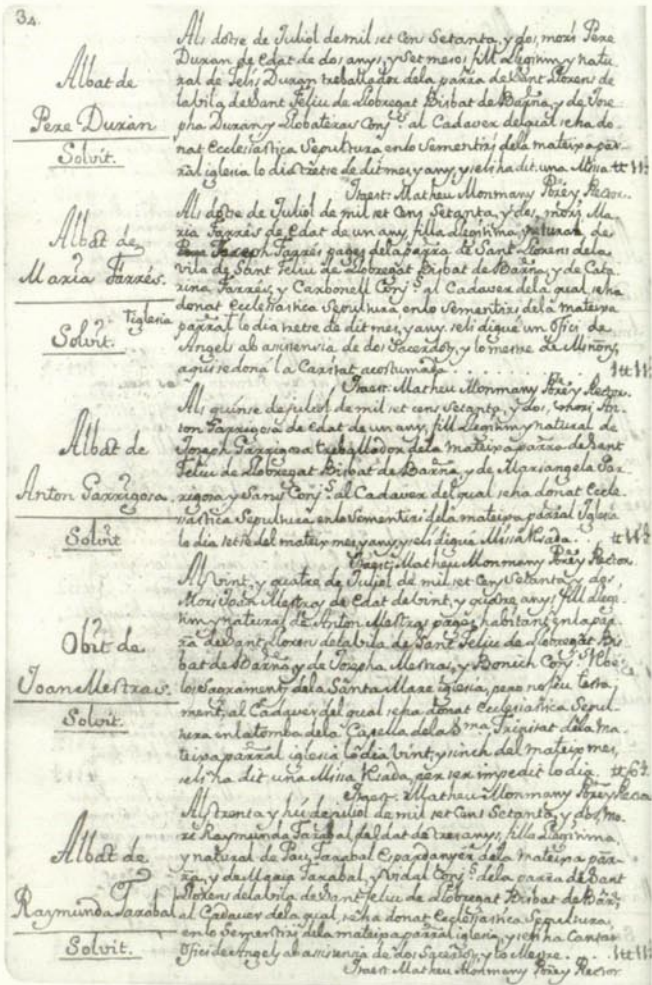 34.
Als dotse de Juliol de mil set Cens Setanta, y dos, morí Pere
Duran de Edat de dos anys, y Set mesos fill Llegitim y natu-
ral de Felix Duran treballador dela parra de Sant Llorens de
lavila de Sant Feliu de Llobregat Bisbat de Barna, y de Jose-
pha Duran y Llobateras Conj.s al Cadaver delqual se ha do-
nat Ecclesiastica Sepultura enlo Sementiri dela mateixa par-
ral iglesia lo dia tretse de dit mes, y any y seli ha dit una Missa
Albat de
Pere Duran
Solvit.
Ita est: Matheu Monmany Rector.
Als dotse de Juliol de mil set Cens Setanta, y dos, morí Ma-
ria Farrés de Edat de un any, filla Llegitima, natural de
Joseph Farrés pages dela parra de Sant Llorens dela
Vila de Sant Feliu de Llobregat Bisbat de Barna, y de Cata-
rina Farrés, y Carbonell Conj.s al Cadaver dela qual se ha
donat Ecclesiastica Sepultura enlo Sementiri dela mateixa
parral lo dia tretse de dit mes, y any. seli digué un Ofici de
Angels ab assistensia de dos Sacerdots, y lo mestre de Minyons,
aqui se doná la Caritat acostumada
Albat de
Maria Farrés.
Yglesia
Solvit.
Ita est: Matheu Monmany Rector.
Als quinse de juliol de mil set cens setanta, y dos, morí An-
ton Garrigosa de Edat de un any, fill Llegitim y natural de
Joseph Garrigosa treballador dela mateixa parra de Sant
Feliu de Llobregat Bisbat de Barna, y de Mariangela Gar-
rigosa y Sans Conj.s al Cadaver del qual se ha donat Eccle-
siastica Sepultura enlo Sementiri dela mateixa parral Iglesia
lo dia setse del mateix mes, y any, y seli digué Missa Resada.
Albat de
Anton Garrigosa
Solvit
Ita est: Matheu Monmany Rector.
Als vint, y quatre de Juliol de mil set Cens Setanta y dos,
Morí Joan Mestras de Edat de vint, y quatre anys fill Llegi-
tim y natural de Anton Mestras pages, habitant en la par-
ra de Sant Lloren dela vila de Sant Feliu de Llobregat Bis-
bat de Barna y de Josepha Mestras, y Bonich Conj.s
los Sagraments dela Santa Mare iglesia, pero no feu testa-
ment, al Cadaver del qual se ha donat Ecclesiastica Sepul-
tura en la tomba dela Capella dela S.ma Trinitat dela ma-
teixa parral iglesia lo dia Vint, y sinch del mateix mes,
seli ha dit una Missa Resada, per ser impedit lo dia.
Obit de
Joan Mestras.
Solvit.
Ita est: Matheu Monmany Rector
Als trenta y hú de juliol de mil set Cens Setanta, y dos, mo-
rí Raymunda Tarabal de Edat de tres anys, filla Llegitima
y natural de Pau Tarabal Espardanyer dela mateixa par-
ra, y de Maria Tarabal, y Vidal Conj.s dela parra de Sant
Llorens dela vila de Sant Feliu de Llobregat Bisbat de Barna,
al Cadaver dela qual, se ha donat Ecclesiastica Sepultura
en lo Sementiri dela mateixa parral iglesia, y seli ha Cantat
Ofici de Angels ab assistensia de dos Sacerdots, y lo Mestre.
Albat de
Raymunda Tarabal
Solvit.
Ita est: Matheu Monmany Rector